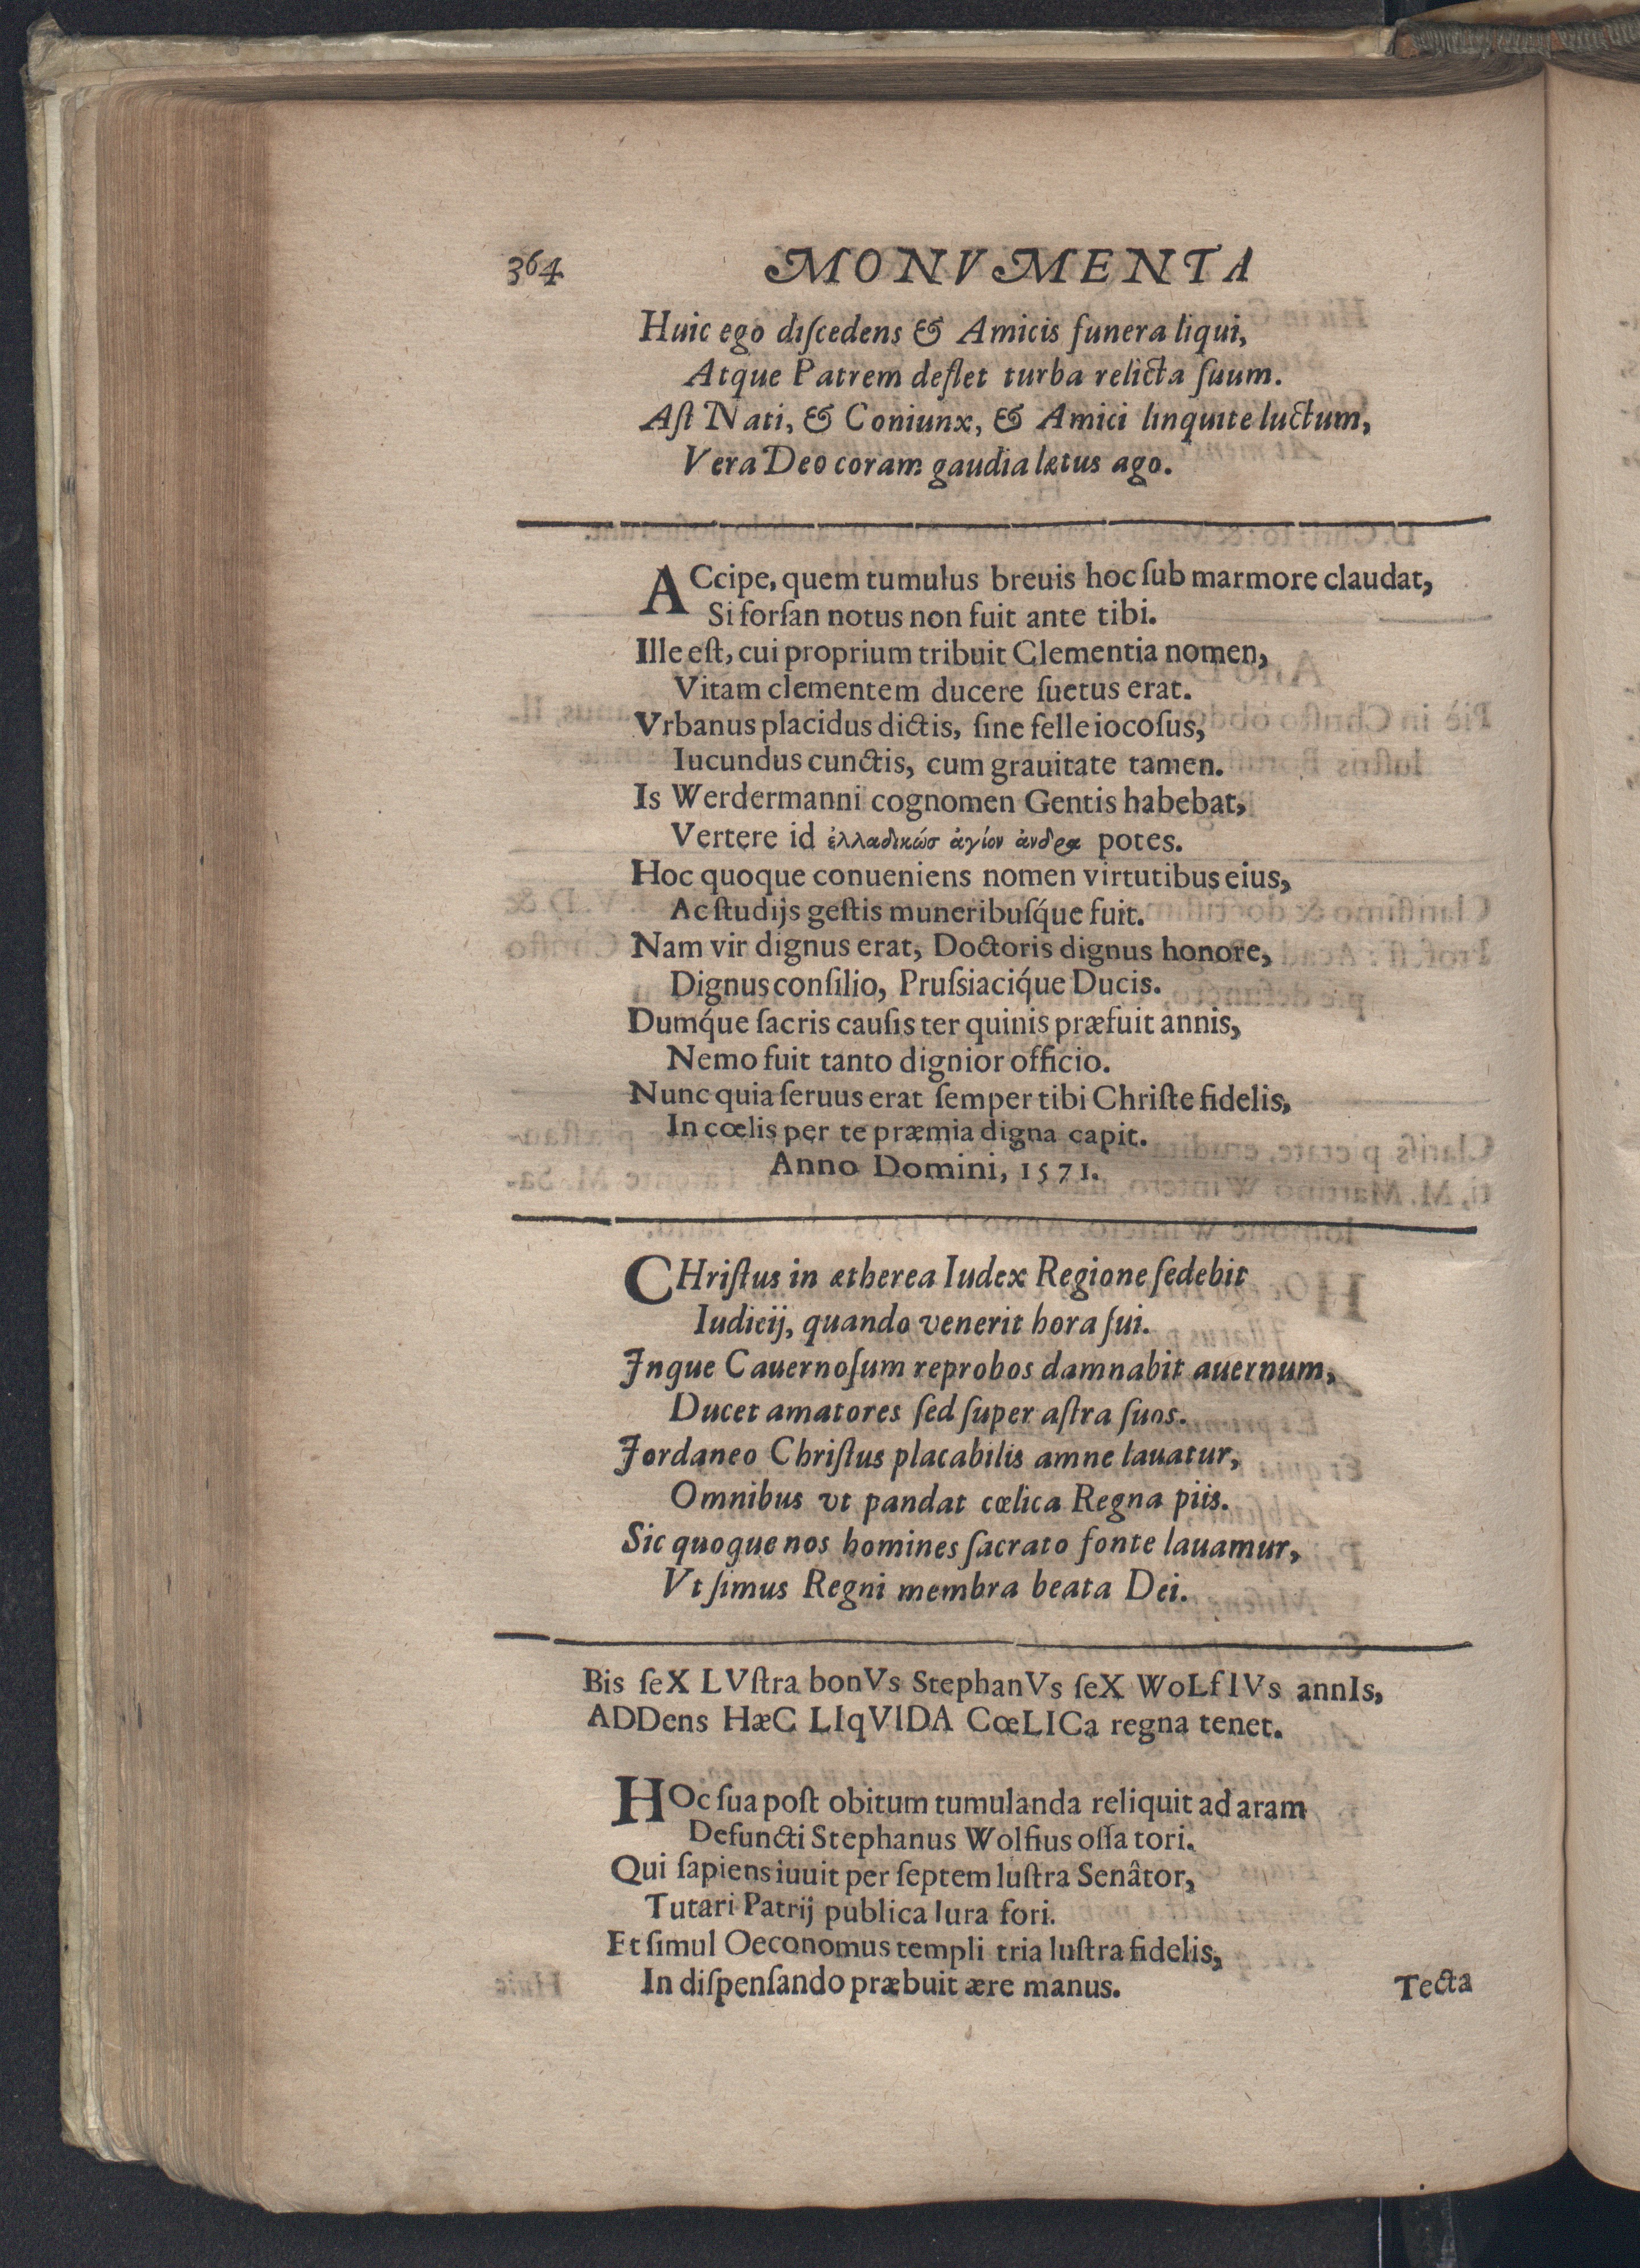 364 MONVMENTA
Huic ego diſcedens & Amicis funera liqui,
Atque Patrem deflet turba relicta ſuum.
Aſt Nati, & Coniunx, & Amici linquite luctum,
Vera Deo coram gaudia lætus ago.
ACcipe, quem tumulus breuis hoc ſub marmore claudat,
Si forſan notus non fuit ante tibi.
Ille eſt, cui proprium tribuit Clementia nomen,
Vitam clementem ducere ſuetus erat.
Vrbanus placidus dictis, ſine felle iocoſus,
Iucundus cunctis, cum grauitate tamen.
Is Werdermanni cognomen Gentis habebat,
Vertere id ἑλλαδικώσ ἁγίον ἀνδρα potes.
Hoc quoque conueniens nomen virtutibus eius,
Ac ſtudijs geſtis muneribuſq́ue fuit.
Nam vir dignus erat, Doctoris dignus honore,
Dignus conſilio, Pruſsiaciq́ue Ducis.
Dumq́ue ſacris cauſis ter quinis præfuit annis,
Nemo fuit tanto dignior officio.
Nunc quia ſeruus erat ſemper tibi Chriſte fidelis,
In cœlis per te præmia digna capit.
Anno Domini, 1571.
CHriſtus in ætherea Iudex Regione ſedebit
Iudicij, quando venerit hora ſui.
Inque Cauernoſum reprobos damnabit auernum,
Ducet amatores ſed ſuper aſtra ſuos.
Iordaneo Chriſtus placabilis amne lauatur,
Omnibus vt pandat cœlica Regna piis.
Sic quoque nos homines ſacrato fonte lauamur,
Vt ſimus Regni membra beata Dei.
Bis ſeX LVſtra bonVs StephanVs ſeX WoLfIVs annIs,
ADDens HæC LIqVIDA CœLICa regna tenet.
HOc ſua poſt obitum tumulanda reliquit ad aram
Defuncti Stephanus Wolfius oſſa tori.
Qui ſapiens iuuit per ſeptem luſtra Senâtor,
Tutari Patrij publica Iura fori.
Et ſimul Oeconomus templi tria luſtra fidelis,
In diſpenſando præbuit ære manus.
Tecta